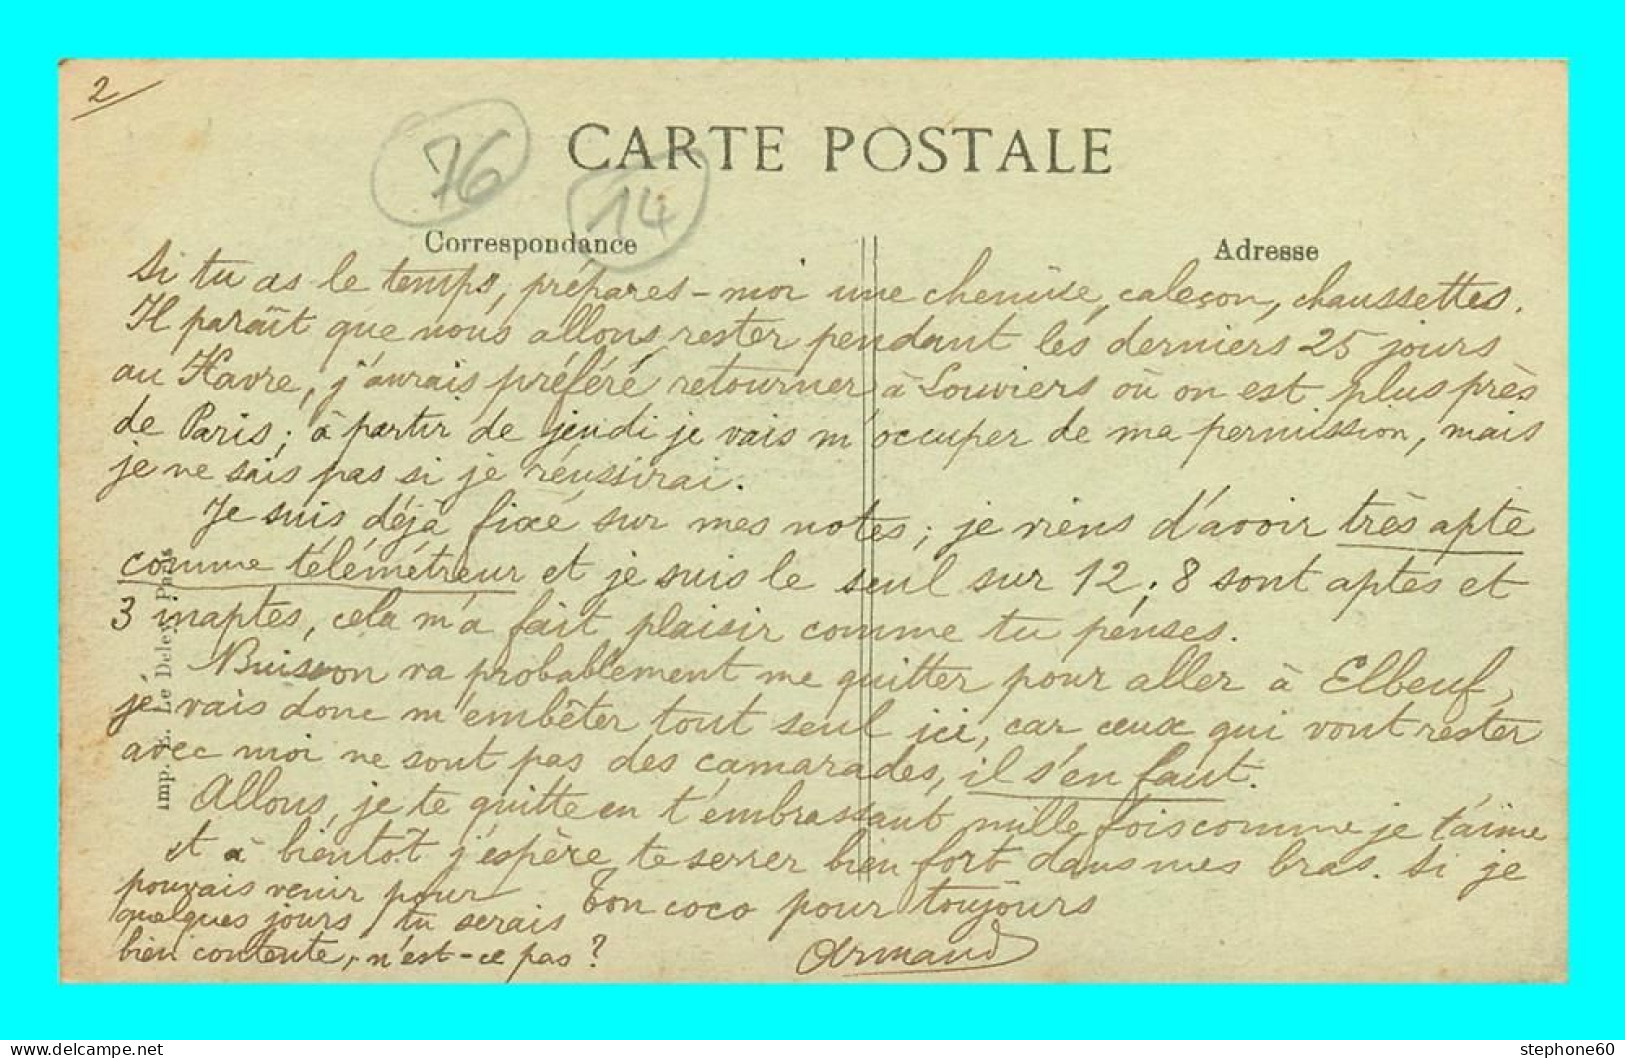 2
76
14
CARTE POSTALE
Correspondance
Adresse
Si tu as le temps, prépares-moi une chemise, caleçon, chaussettes.
Il paraît que nous allons rester pendant les derniers 25 jours
au Havre, j'aurais préféré retourner à Louviers où on est plus près
de Paris; à partir de jeudi je vais m'occuper de ma permission, mais
je ne sais pas si je réussirai.
Je suis déjà fixé sur mes notes; je viens d'avoir très apte
comme télémétreur et je suis le seul sur 12; 8 sont aptes et
3 inaptes, cela m'a fait plaisir comme tu penses.
Buisson va probablement me quitter pour aller à Elbeuf,
je vais donc m'embêter tout seul ici, car ceux qui vont rester
avec moi ne sont pas des camarades, il s'en faut.
Allons, je te quitte en t'embrassant mille fois comme je t'aime
et à bientôt j'espère te serrer bien fort dans mes bras. Si je
pouvais venir pour
quelques jours, tu serais
bien contente, n'est-ce pas?
Ton coco pour toujours
Armand
Imp. E. Le Deley, Paris
www.delcampe.net
stephone60